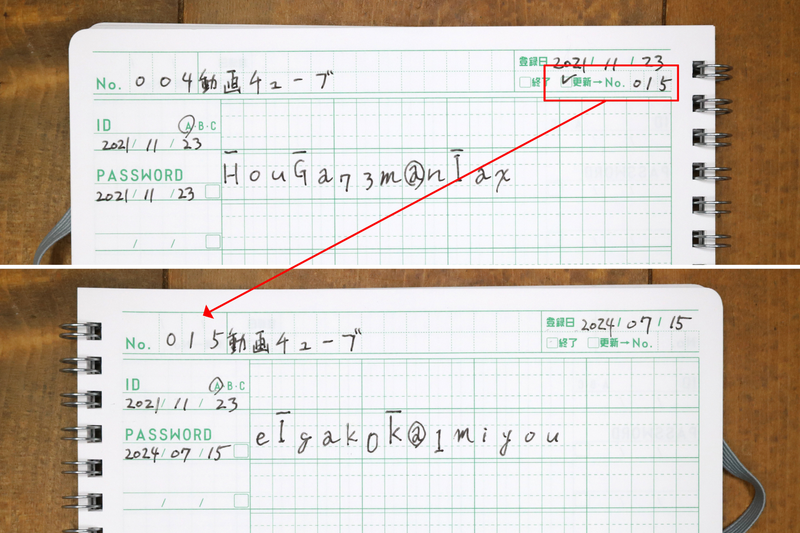 No. 004 動画チューブ
登録日 2021/11/23
終了 更新→No. 015
ID A·B·C
2021/11/23
PASSWORD HouGa73m@nIax
2021/11/23
/ /
No. 015 動画チューブ
登録日 2024/07/15
終了 更新→No.
ID A·B·C
2021/11/23
PASSWORD eIgak0k@1miyou
2024/07/15
/ /